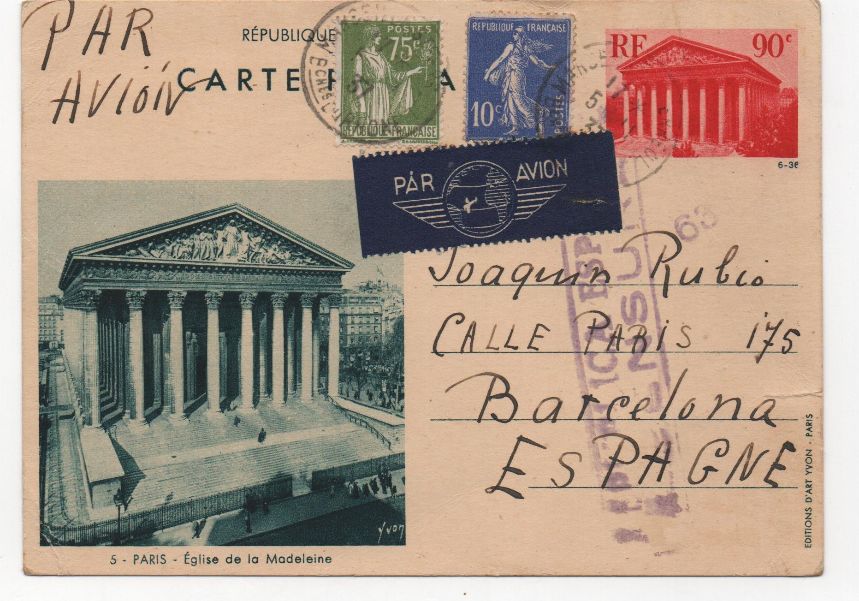 PAR
AVION
RÉPUBLIQUE
CARTE P A
POSTES
75c
RÉPUBLIQUE FRANÇAISE
RÉPUBLIQUE FRANÇAISE
10c
POSTES
RF 90c
6-36
PAR AVION
63
Joaquin Rubio
CALLE PARIS 175
Barcelona
ESPAGNE
EDITIONS D'ART YVON - PARIS
Yvon
5 - PARIS - Église de la Madeleine